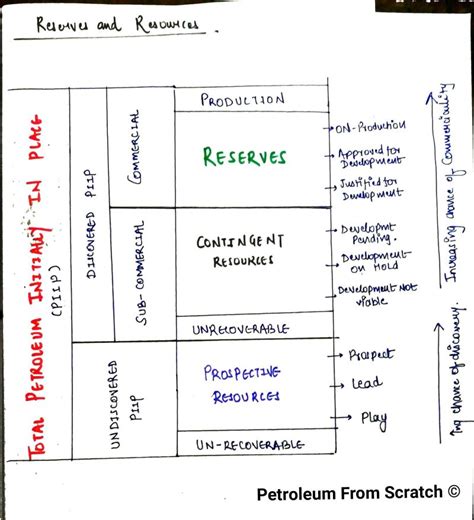 Reserves and Resources.
TOTAL PETROLEUM INITIALLY IN PLACE
(PIIP)
DISCOVERED PIIP
COMMERCIAL
PRODUCTION
RESERVES
ON-Production
Approved for
Development
Justified for
Development
SUB-COMMERCIAL
CONTINGENT
RESOURCES
Developmt
Pending.
Development
on Hold
Development NOT
viable
UNRECOVERABLE
UNDISCOVERED
PIIP
PROSPECTIVE
RESOURCES
Prospect
Lead
Play
UN-RECOVERABLE
Increasing chance of Commerciality
Ing chance of discovery.
Petroleum From Scratch ©